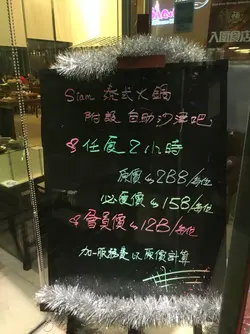 Siam 泰式火鍋
附設 自助沙津吧
任食2小時
原價$288/每位
優惠價$158/每位
會員價$128/每位
加一服務費以原價計算